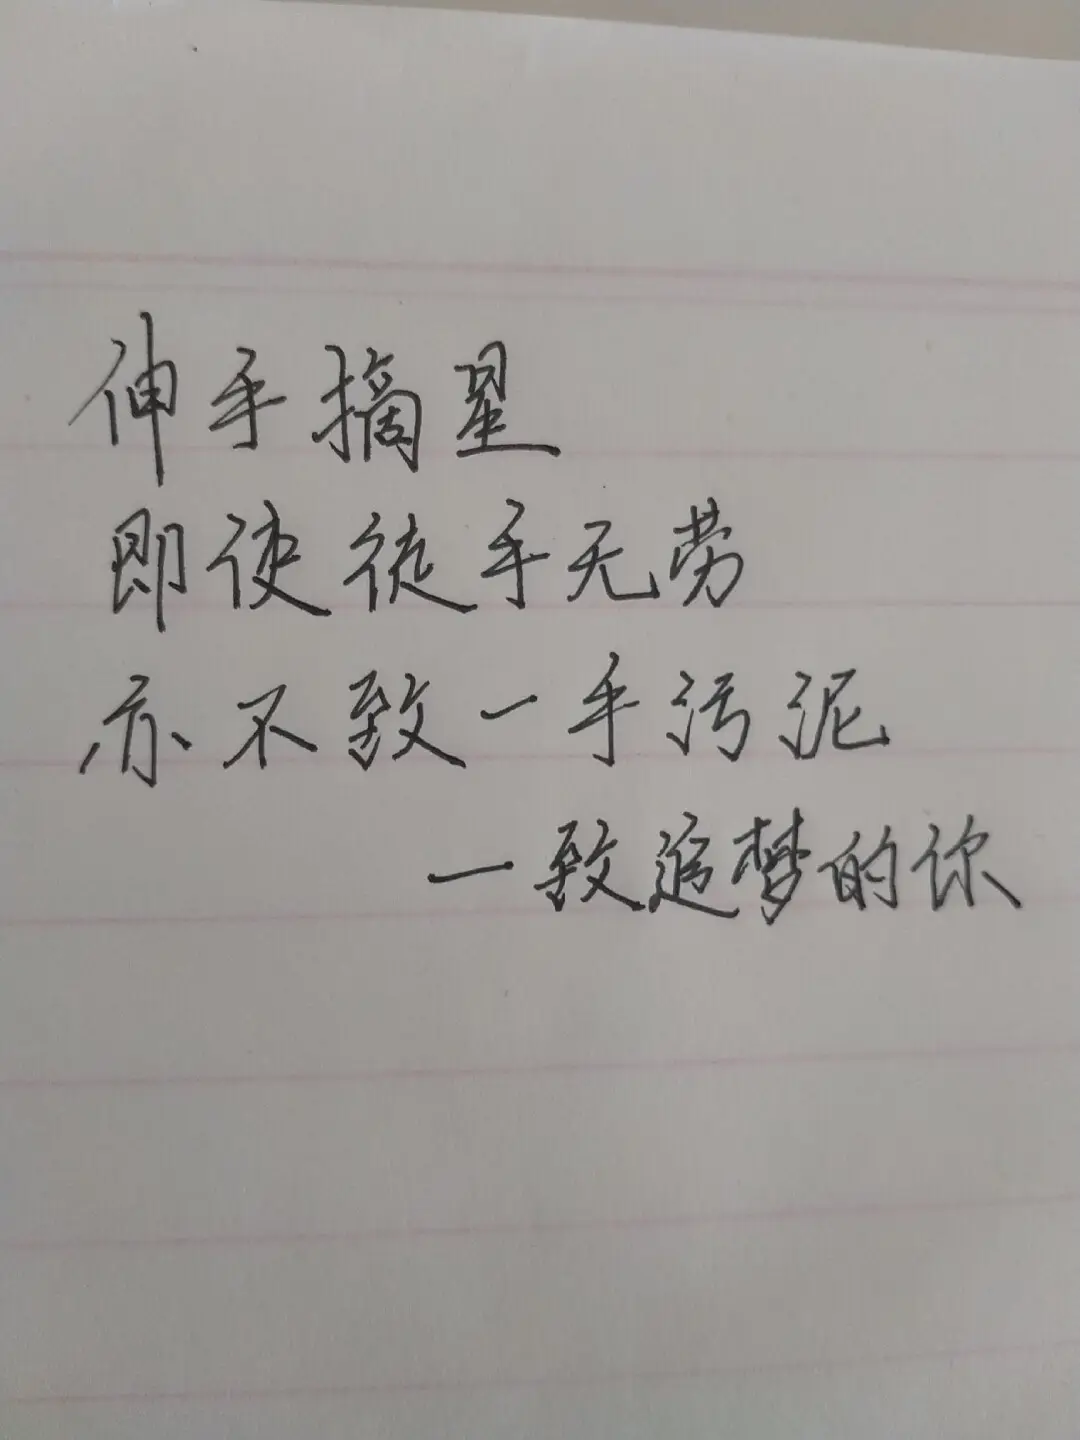 伸手摘星
即使徒手无劳
亦不致一手污泥
一致追梦的你